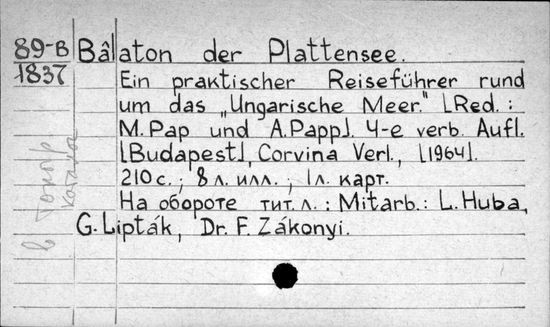 89-В Bâlaton der Plattensee.
1837 Ein praktischer Reiseführer rund
um das „Ungarische Meer." [Red.:
M. Pap und A. Papp]. 4-e verb. Aufl.
[Budapest], Corvina Verl., [1964].
210 с.; 8 л. илл.; 1 л. карт.
На обороте тит. л.: Mitarb.: L. Huba,
G. Lipták, Dr. F. Zákonyi.
в топогр
каталог